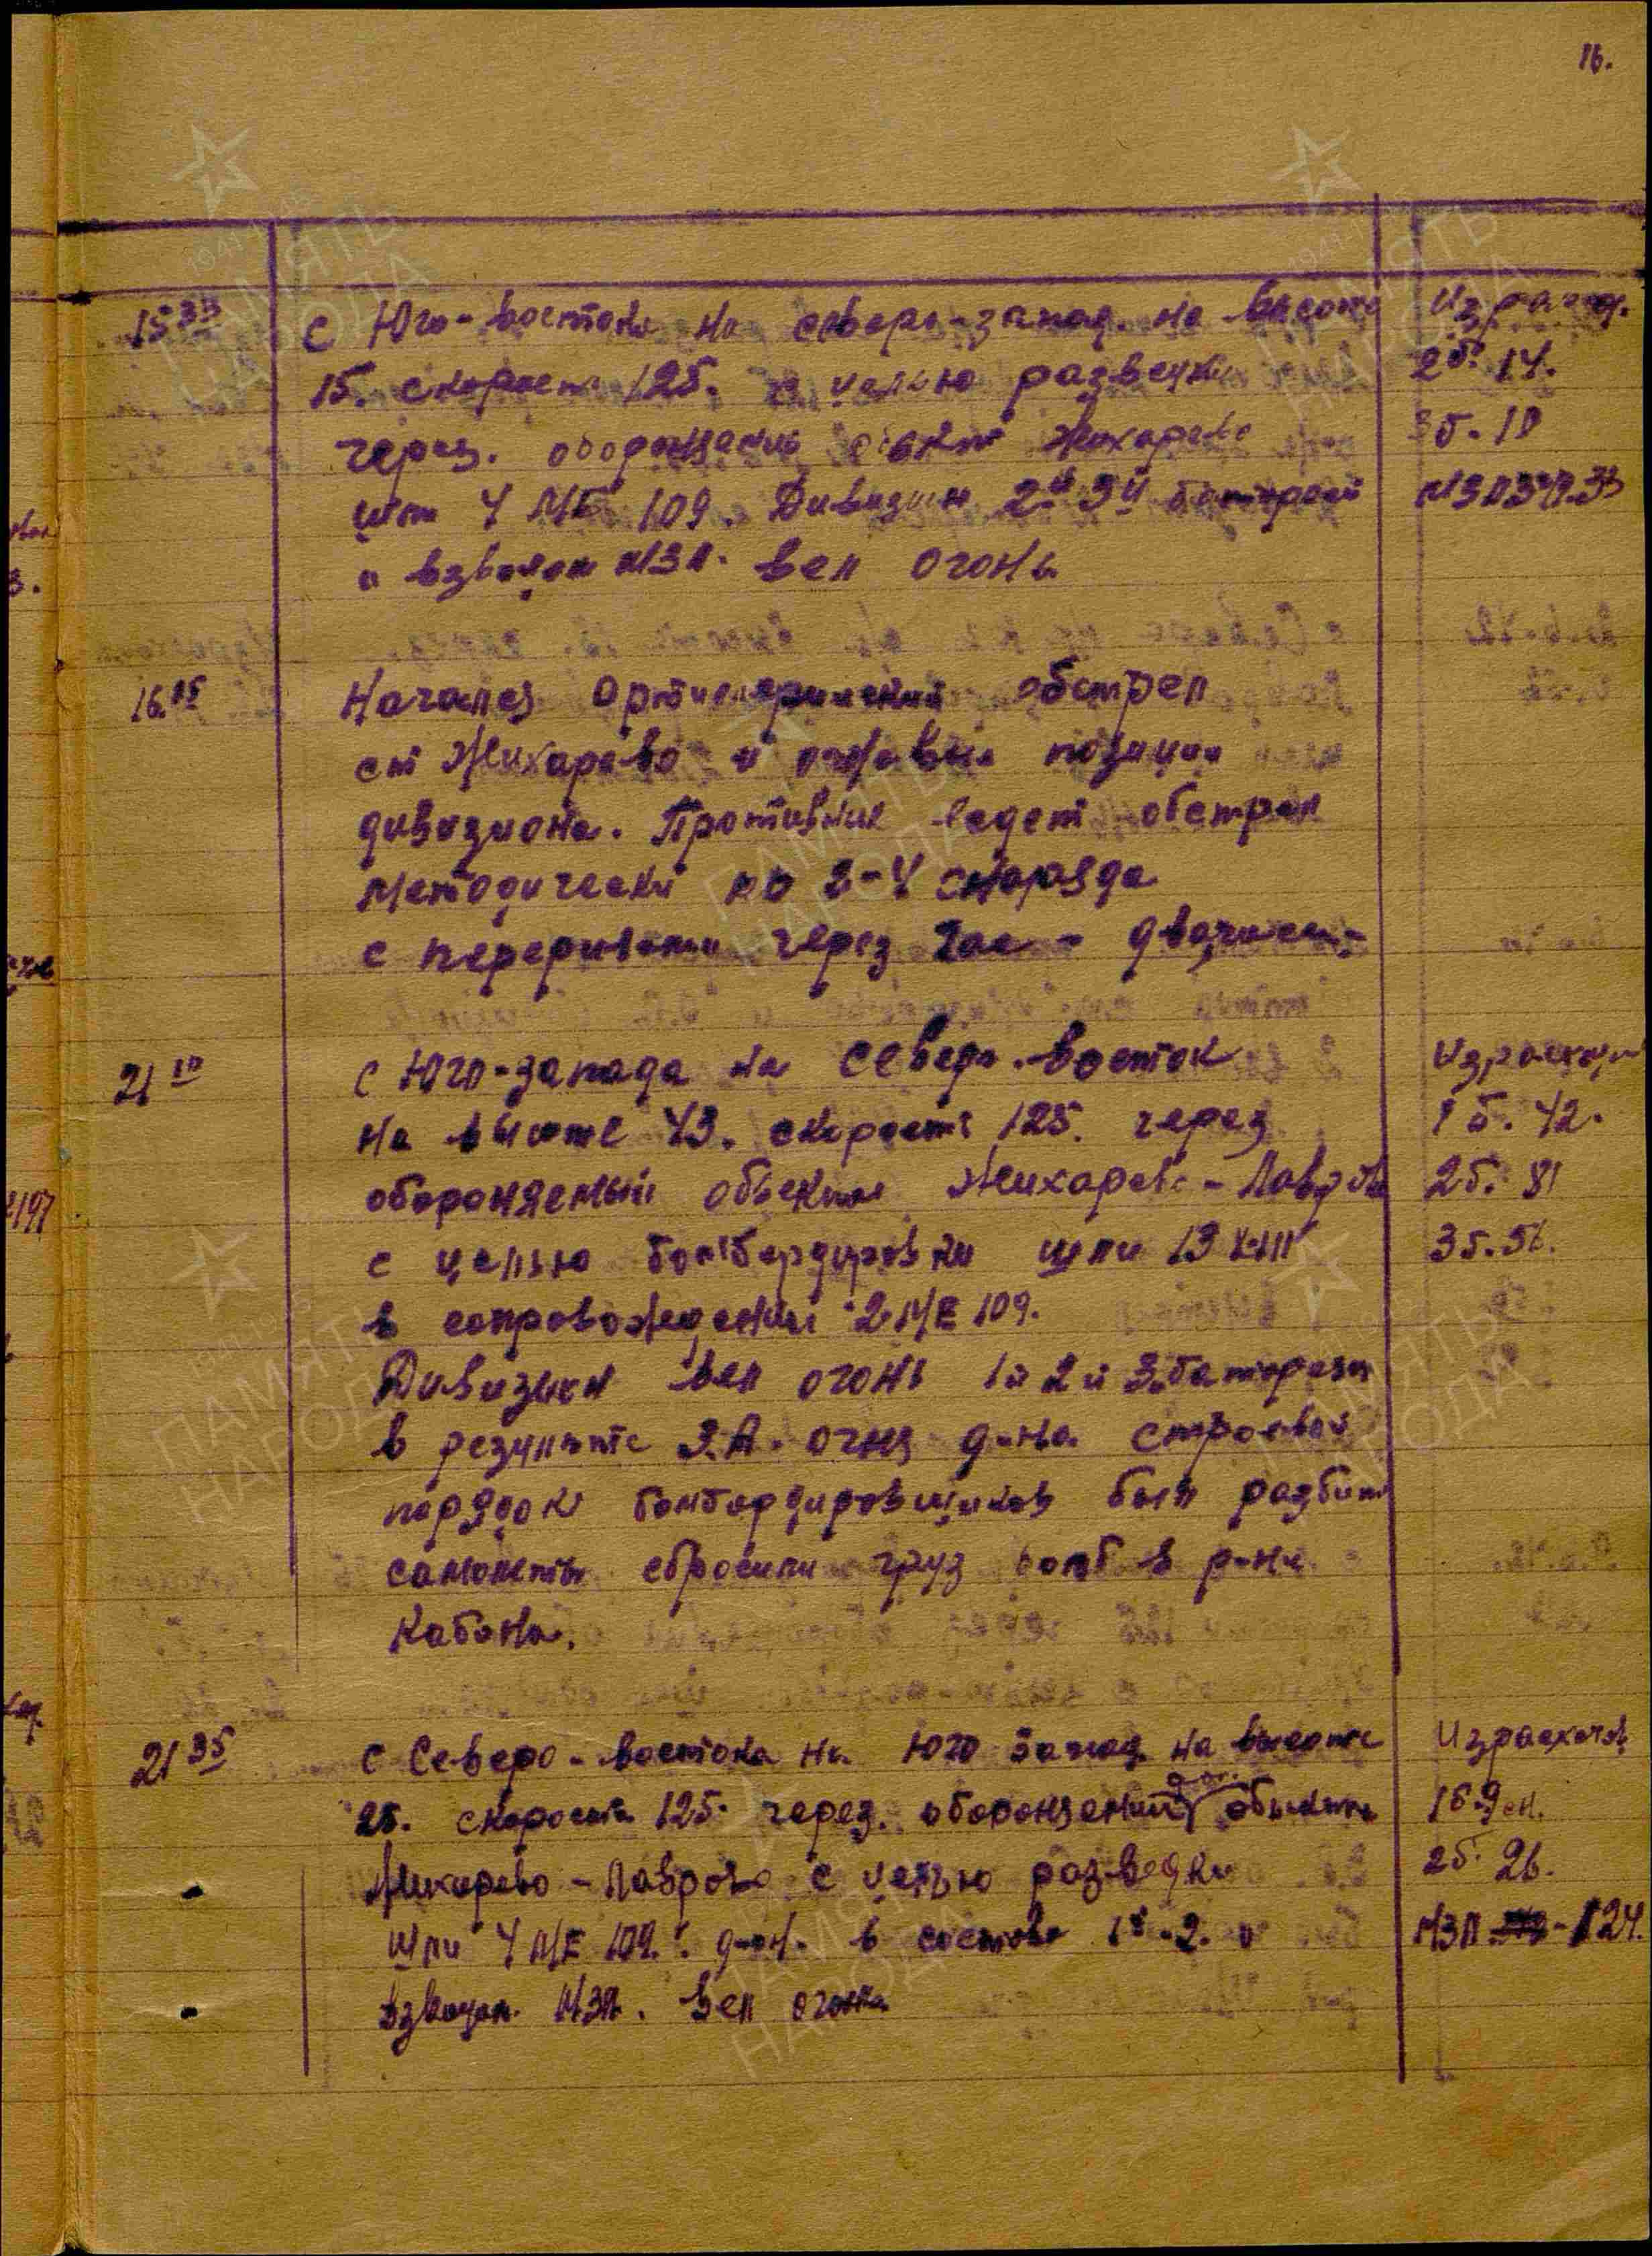 16.
15 33 С Юго-востока на северо-запад. на высоте Израсход.
15. скорость 125. с целью разведки 2б. 14.
через. обороняемый Жихарево 3б. 10
шт 4 МЕ 109. Дивизион 2й 3й батареей МЗП
и взводом МЗП. вел огонь
16.15 Начался Артиллерийский обстрел
ст Жихарево и огневые позиции
дивизиона. Противник ведет обстрел
методически по 2-4 снаряда
с перерывами через час -
21 10 с Юго-запада на Северо. Восток
на высоте 43. скорость 125. через 1 б. 42.
обороняемый объекты Жихарево - Лаврово 2б. 81
с целью бомбардировки шли 13 3б. 56.
в сопровождении 2 МЕ 109.
Дивизион вел огонь 1й 2й 3й батареей
в результате З.А. огня д-на строевой
порядок бомбардировщиков был разбит
самолеты сбросили груз бомб в р-не
Кабона.
21 35 с Северо-востока на Юго Запад на высоте
25. скорость 125. через. обороняемый объекты
Жихарево - Лаврово с целью разведки 2б. 26.
Шли 4 МЕ 109. д-он. в составе 1й-2. и МЗП - 124.
взводом МЗП. вел огонь
ПАМЯТЬ
НАРОДА